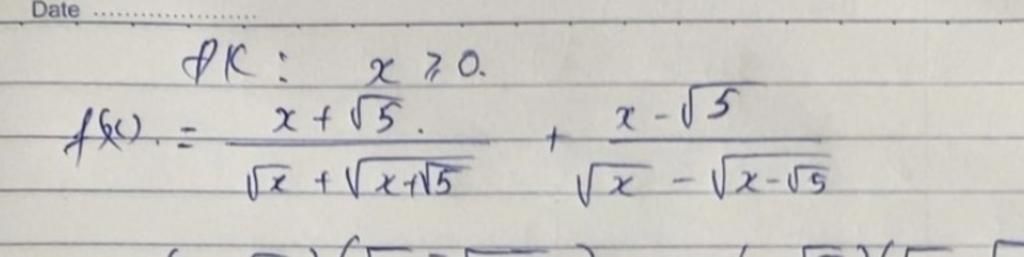 Date ....................
ĐK: x ⩾ 0.
f(x). = \frac{x + \sqrt{5}.}{\sqrt{x} + \sqrt{x+\sqrt{5}}} + \frac{x - \sqrt{5}}{\sqrt{x} - \sqrt{x-\sqrt{5}}}